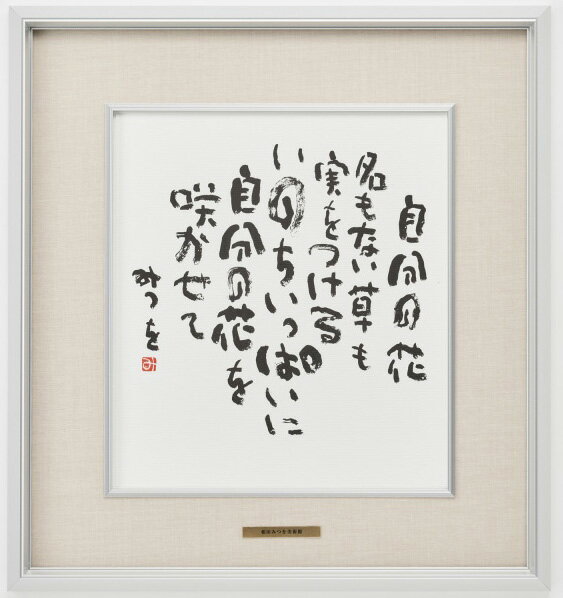 自分の花
名もない草も
実をつける
いのちいっぱいに
自分の花を
咲かせて
みつを
み
相田みつを美術館